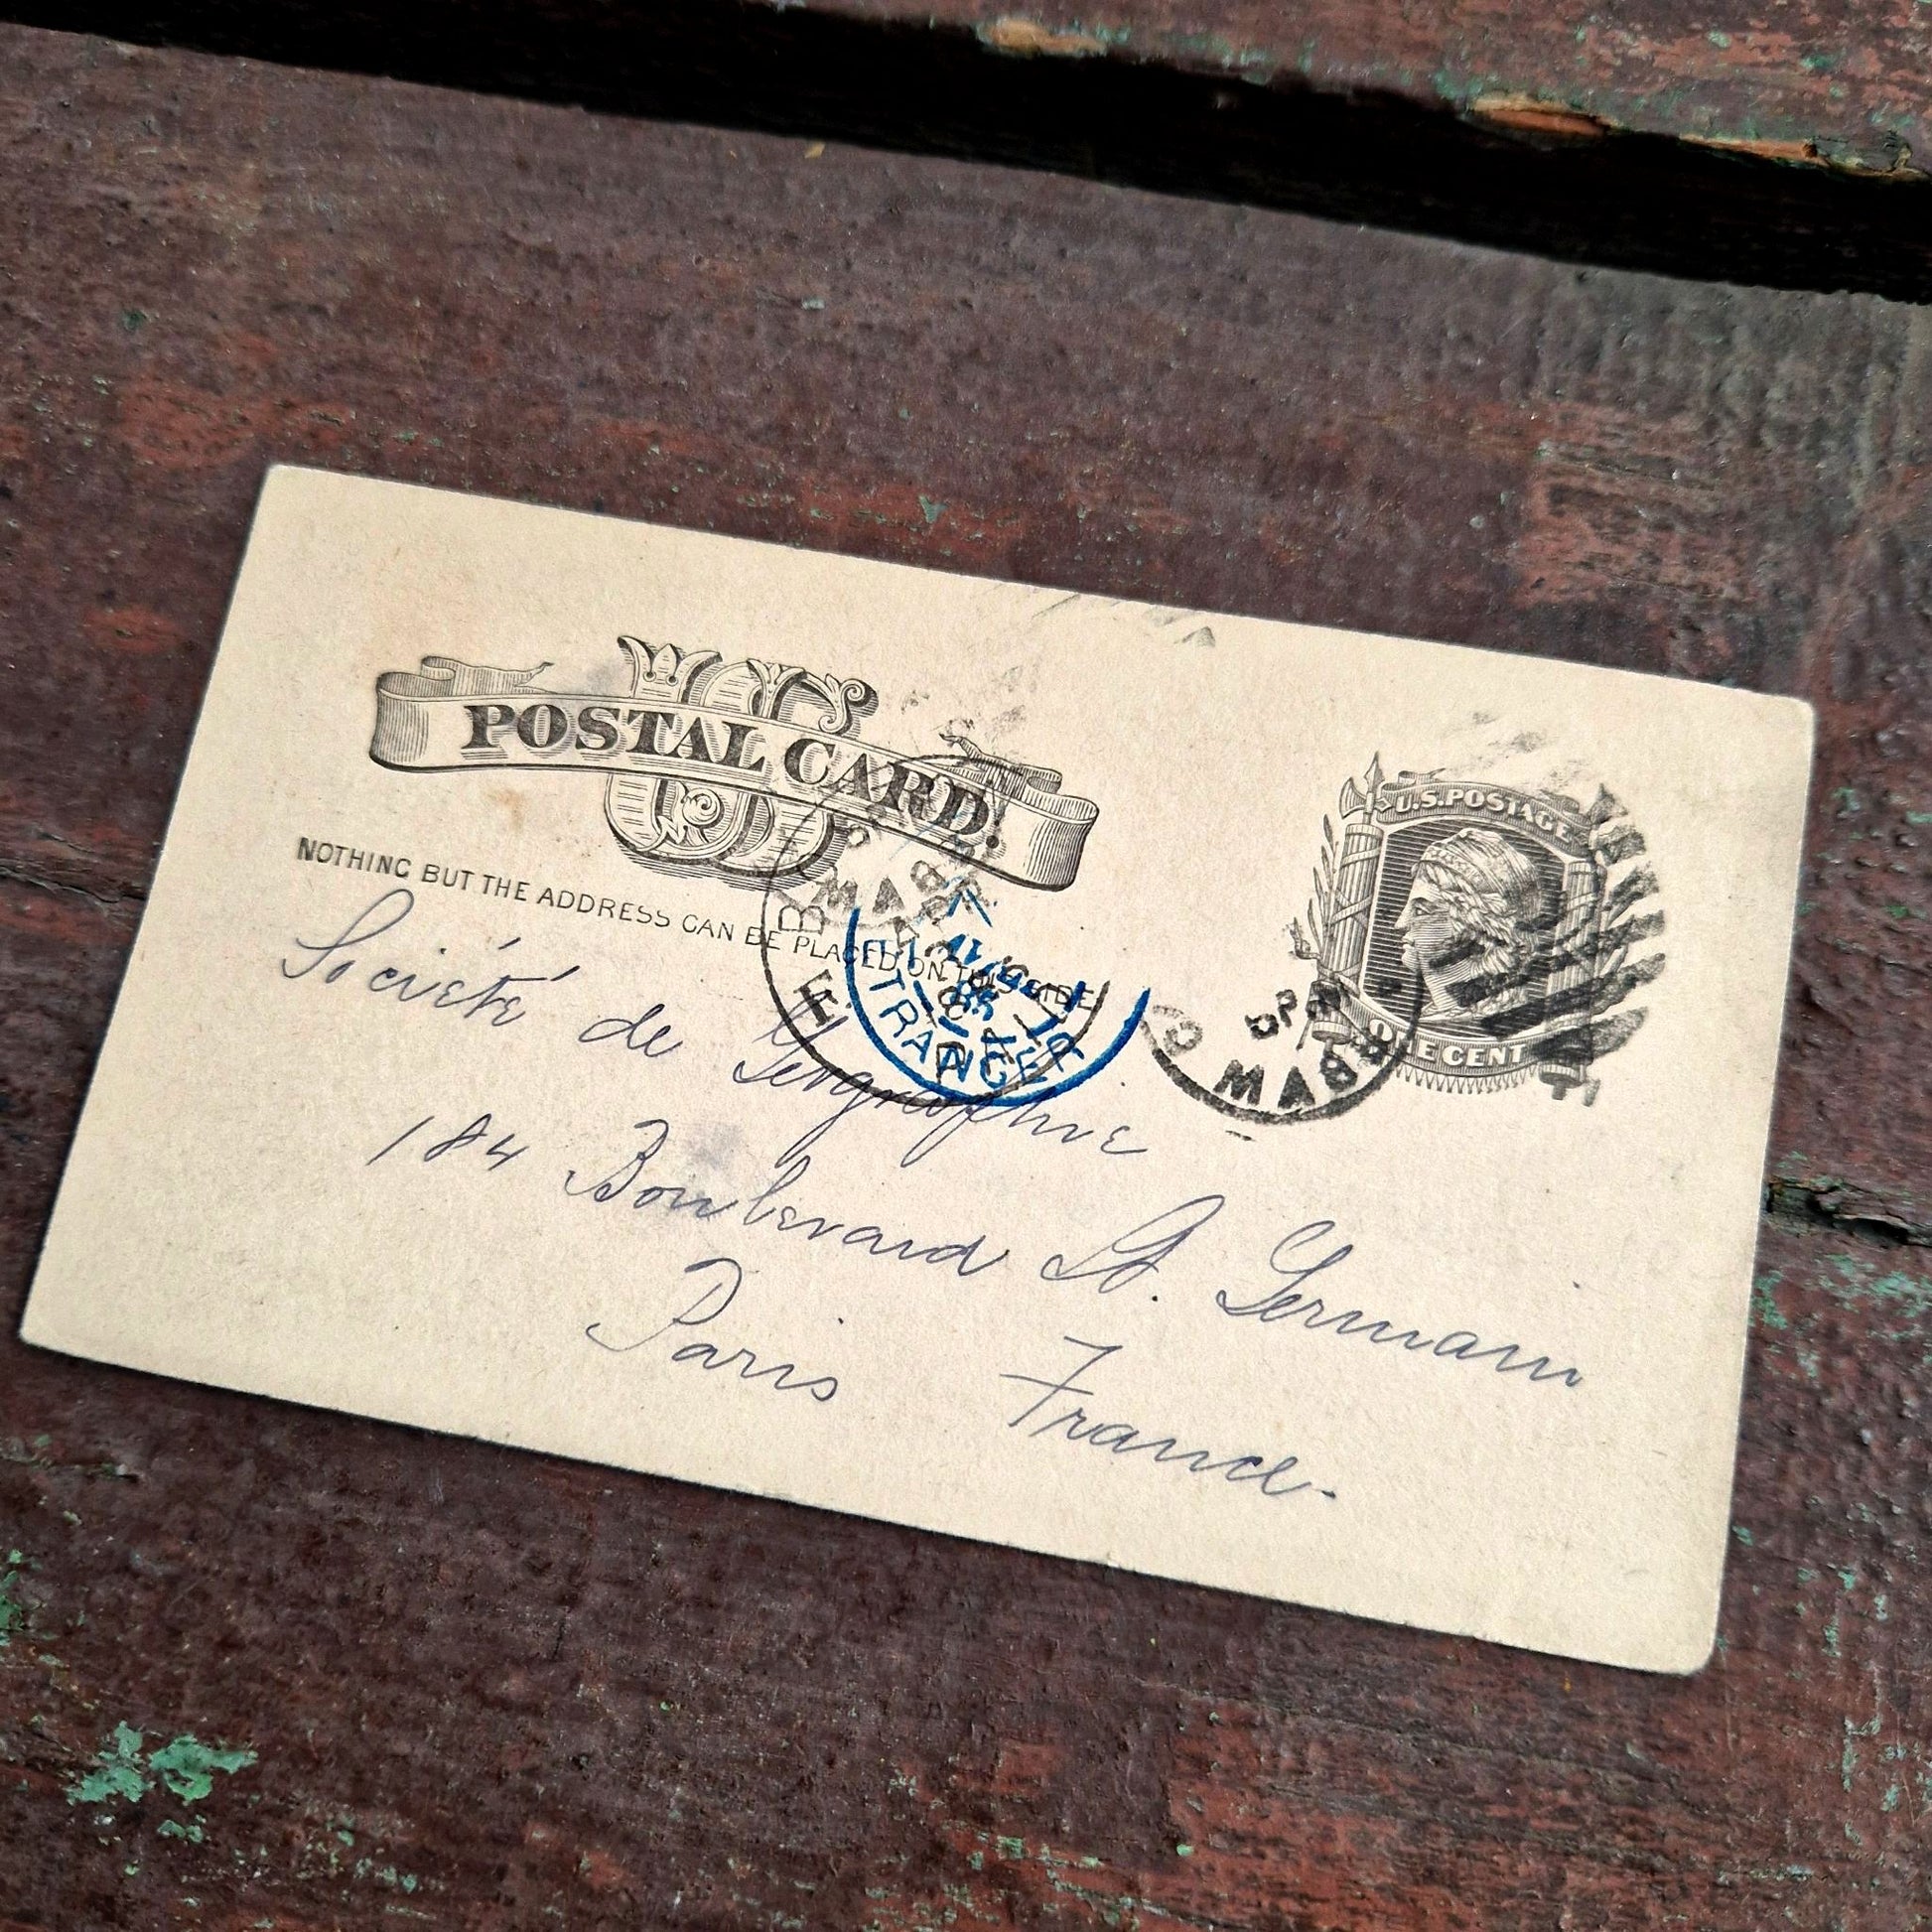 US
POSTAL CARD.
NOTHING BUT THE ADDRESS CAN BE PLACED ON THIS SIDE
U.S. POSTAGE
ONE CENT
MASS
ETRANGER
MASS
Société de Géographie
184 Boulevard St. Germain
Paris France.